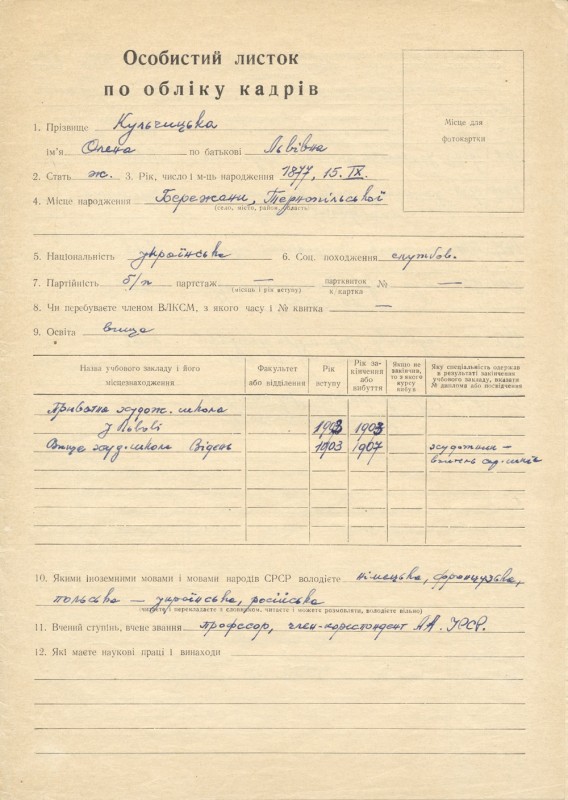 Особистий листок
по обліку кадрів
Місце для
фотокартки
1. Прізвище Кульчицька
ім'я Олена по батькові Львівна
2. Стать ж. 3. Рік, число і м-ць народження 1877, 15.IX.
4. Місце народження Бережани, Тернопільської
(село, місто, район, область)
5. Національність українська 6. Соц. походження службов.
7. Партійність б/п партстаж — партквиток к. картка № —
(місяць і рік вступу)
8. Чи перебуваєте членом ВЛКСМ, з якого часу і № квитка —
9. Освіта вища
Назва учбового закладу і його місцезнаходження
Факультет або відділення
Рік вступу
Рік закінчення або вибуття
Якщо не закінчив, то з якого курсу вибув
Яку спеціальність одержав в результаті закінчення учбового закладу, вказати № диплома або посвідчення
Приватна худож. школа
у Львові 1903
Вища худ. школа Відень 1903 1907 художник –
10. Якими іноземними мовами і мовами народів СРСР володієте німецька, французька,
польська — українська, російська
(читаєте і перекладаєте з словником, читаєте і можете розмовляти, володієте вільно)
11. Вчений ступінь, вчене звання професор, член-кореспондент АА. УРСР.
12. Які маєте наукові праці і винаходи